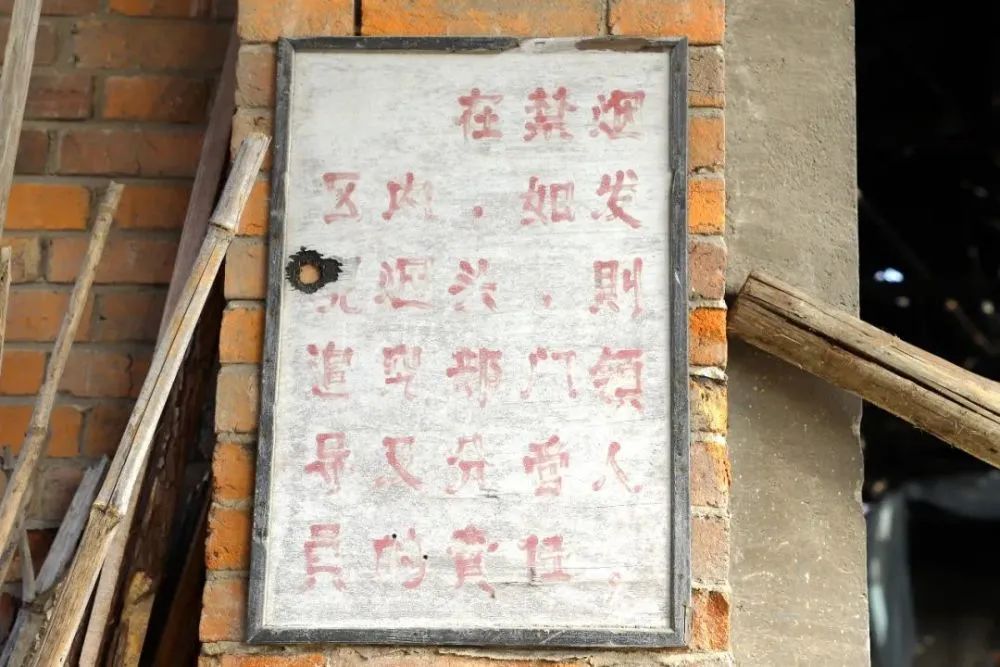 在禁烟
区内，如发
見烟头，則
追究部门領
导及分管人
員的責任。